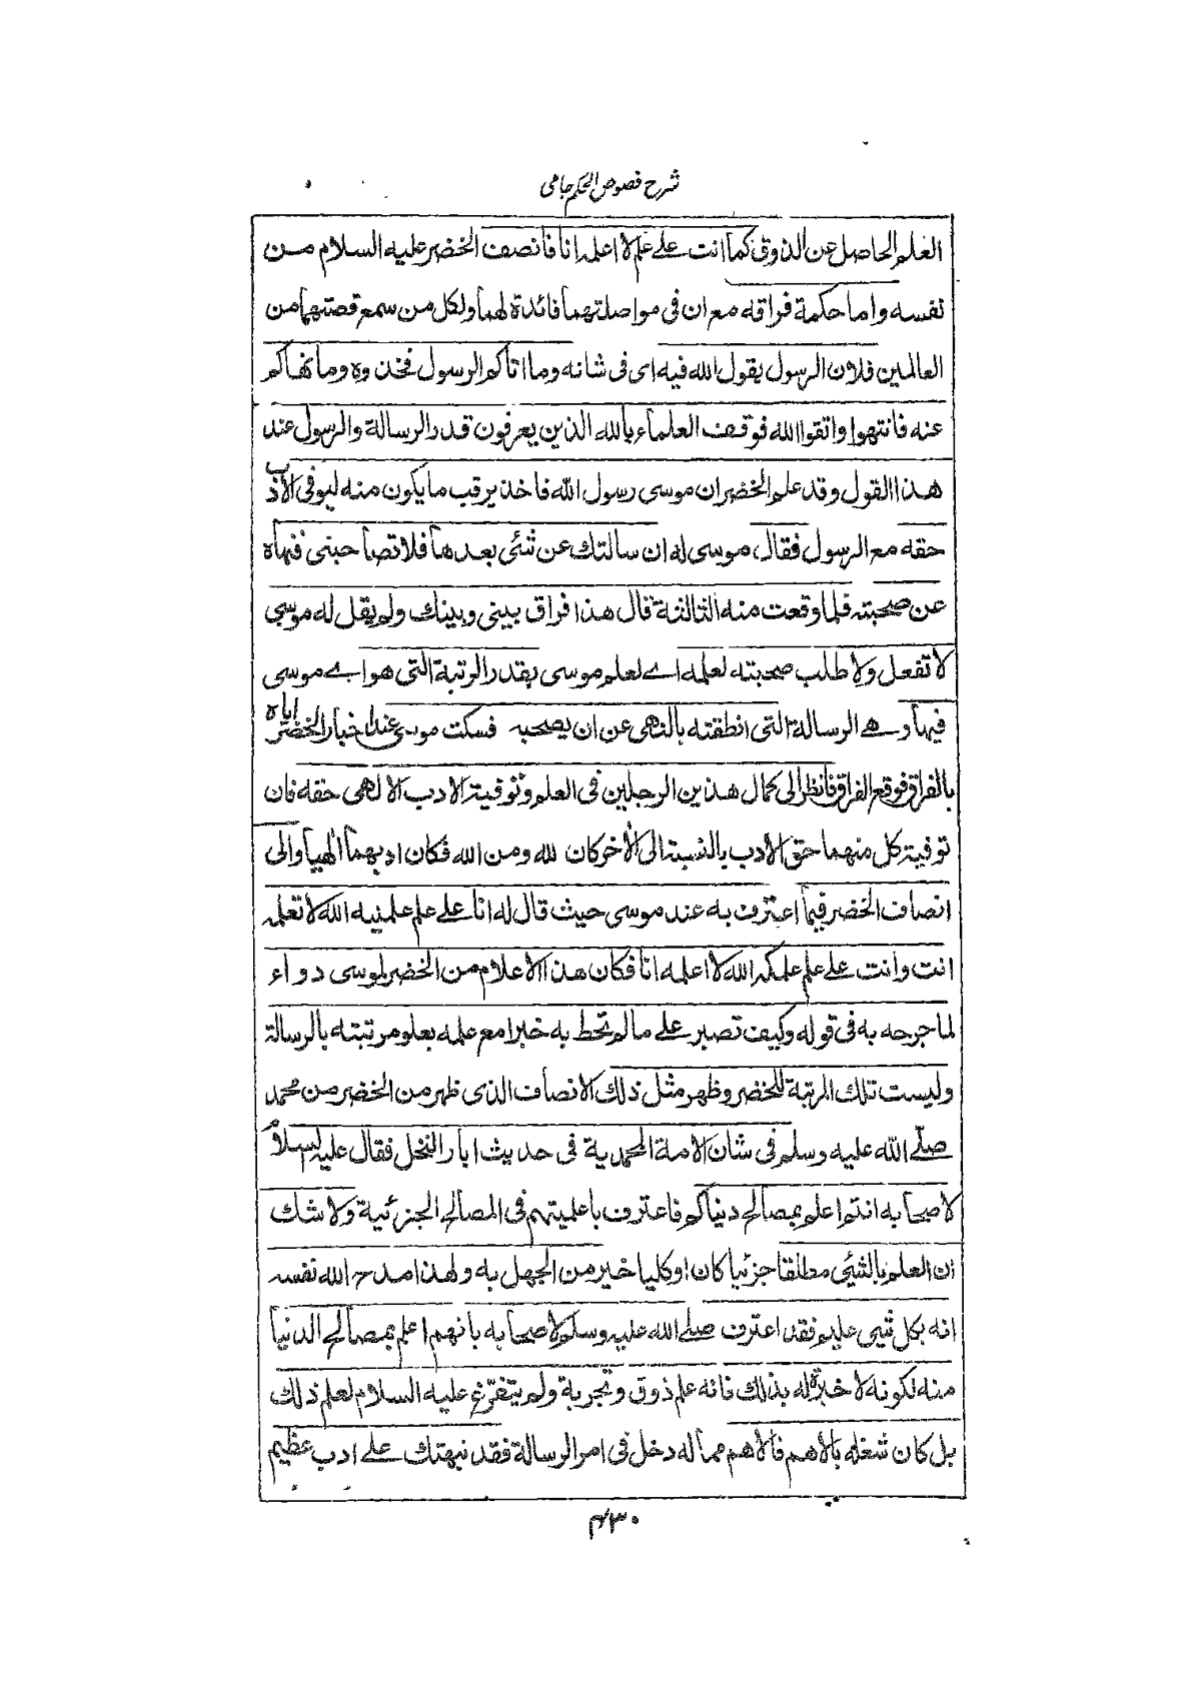 شرح فصوص الحكم جامی
العلم الحاصل عن الذوق كما انت علے علم لا اعلمه انا فانصف الخضر عليه السلام من
نفسه واما حكمة فراقه مع ان فى مواصلتهما فائدة لهما ولكل من سمع قصتهما من
العالمين فلان الرسول يقول الله فيه اى فى شانه وما اتاكم الرسول فخذوه وما نهاكم
عنه فانتهوا واتقوا الله فوقف العلماء بالله الذين يعرفون قدر الرسالة والرسول عند
هذا القول وقد علم الخضر ان موسى رسول الله فاخذ يرقب ما يكون منه ليوفى الادب
حقه مع الرسول فقال موسى له ان سالتك عن شئى بعدها فلا تصاحبنى فنهاه
عن صحبته فلما وقعت منه الثالثة قال هذا فراق بينى وبينك ولم يقل له موسى
لا تفعل ولا طلب صحبته لعلمه اے لعلم موسى بقدر الرتبة التى هو اے موسى
فيها وهے الرسالة التى انطقته بالنهى عن ان يصحبه فسكت موسى عند اخبار الخضر اياه
بالفراق فوقع الفراق فانظر الى كمال هذين الرجلين فى العلم وتوفية الادب الالهى حقه فان
توفية كل منهما حق الادب بالنسبة الى الأخر كان لله ومن الله فكان ادبهما الٰهيا والى
انصاف الخضر فيما اعترف به عند موسى حيث قال له انا علے علم علمنيه الله لا تعلمه
انت وانت علے علم علمكه الله لا اعلمه انا فكان هذا الاعلام من الخضر لموسى دواء
لما جرحه به فى قوله وكيف تصبر علے ما لم تحط به خبرا مع علمه بعلو مرتبته بالرسالة
وليست تلك المرتبة للخضر وظهر مثل ذلك الانصاف الذى ظهر من الخضر من محمد
صلّے اللّٰه عليه وسلم فى شان الامة المحمدية فى حديث ابار النخل فقال عليه السلام
لاصحابه انتم اعلم بمصالح دنياكم فاعترف باعلميتهم فى المصالح الجزئية ولا شك
ان العلم بالشئى مطلقا جزئيا كان او كليا خير من الجهل به ولهذا مدح الله نفسه
انه بكل شيى عليم فقد اعترف صلے الله عليه وسلم لاصحابه بانهم اعلم بمصالح الدنيا
منه لكونه لا خبرة له بذلك فانه علم ذوق وتجربة ولم يتفرّغ عليه السلام لعلم ذلك
بل كان شغله بالاهم فالاهم مما له دخل فى امر الرسالة فقد نبهتك علے ادب عظيم
۴۳۰